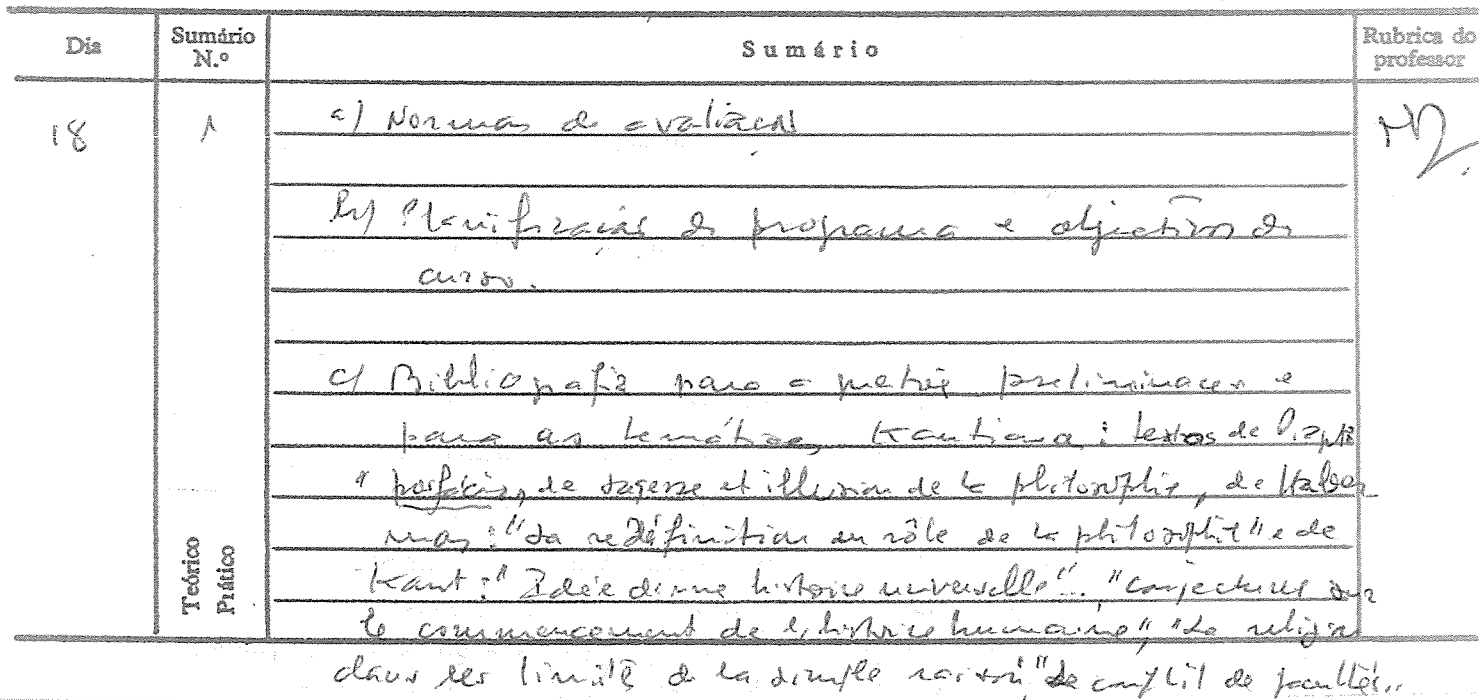 Dia Sumário N.º Sumário Rubrica do professor
18 1 a) Normas de avaliação
b) Planificação do programa e objectivos do
curso.
c) Bibliografia para a matéria preliminares e
para as temáticas Kantiana: textos de Piaget
" de sagesse et illusion de la philosophie, de Haber
mas: "La redéfinition du rôle de la philosophie" e de
Kant: "Idée d'une histoire universelle".. "conjectures sur
le commencement de l'histoire humaine", "La religion
dans les limites de la simple raison" "Le conflit de facultés..
Teórico
Prático